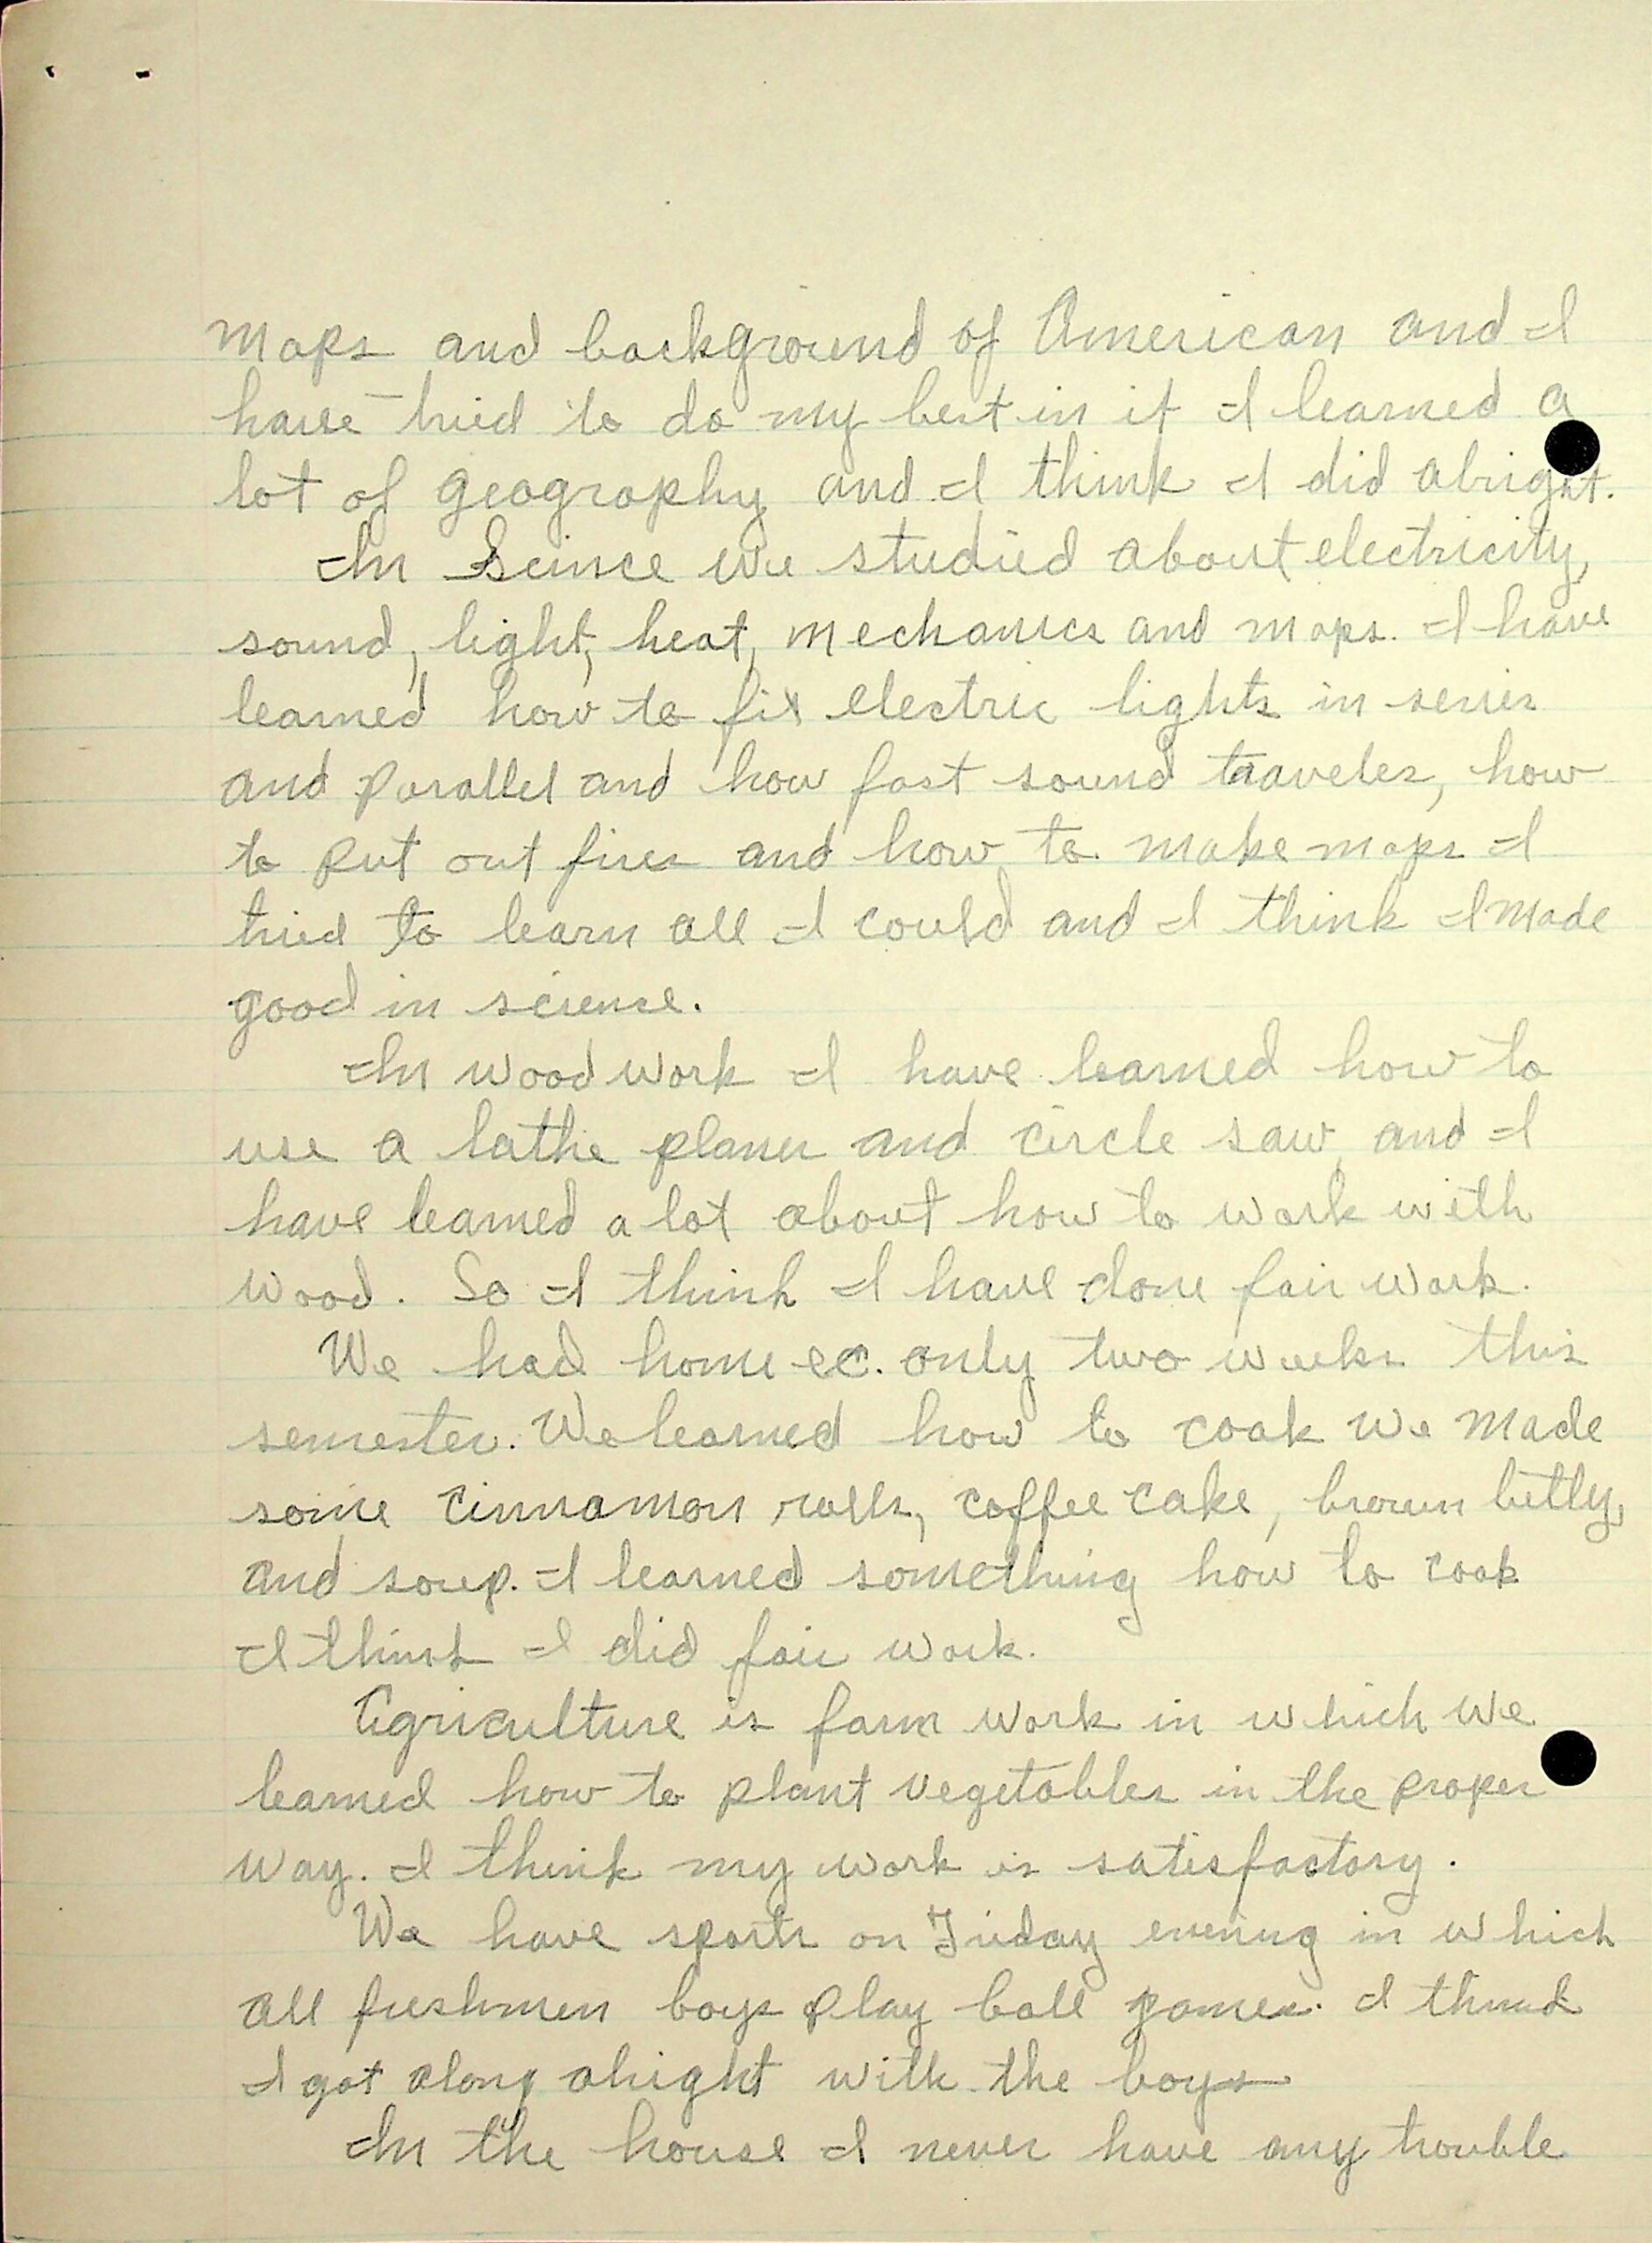 maps and background of American and I
have tried to do my best in it I learned a
lot of geography and I think I did alright.
In Scince we studied about electricity,
sound, light, heat, mechanics and maps. I have
learned how to fix electric lights in series
and parallel and how fast sound traveles, how
to put out fires and how to make maps I
tried to learn all I could and I think I made
good in science.
In wood work I have learned how to
use a lathe planer and circle saw, and I
have learned a lot about how to work with
wood. So I think I have done fair work.
We had home ec. only two weeks this
semester. We learned how to cook we made
some cinnamon rolls, coffee cake, brown betty,
and soup. I learned something how to cook
I think I did fair work.
Agriculture is farm work in which we
learned how to plant vegetables in the proper
way. I think my work is satisfactory.
We have sports on Friday evening in which
all freshmen boys play ball games. I
I got along alright with the boys
In the house I never have any trouble